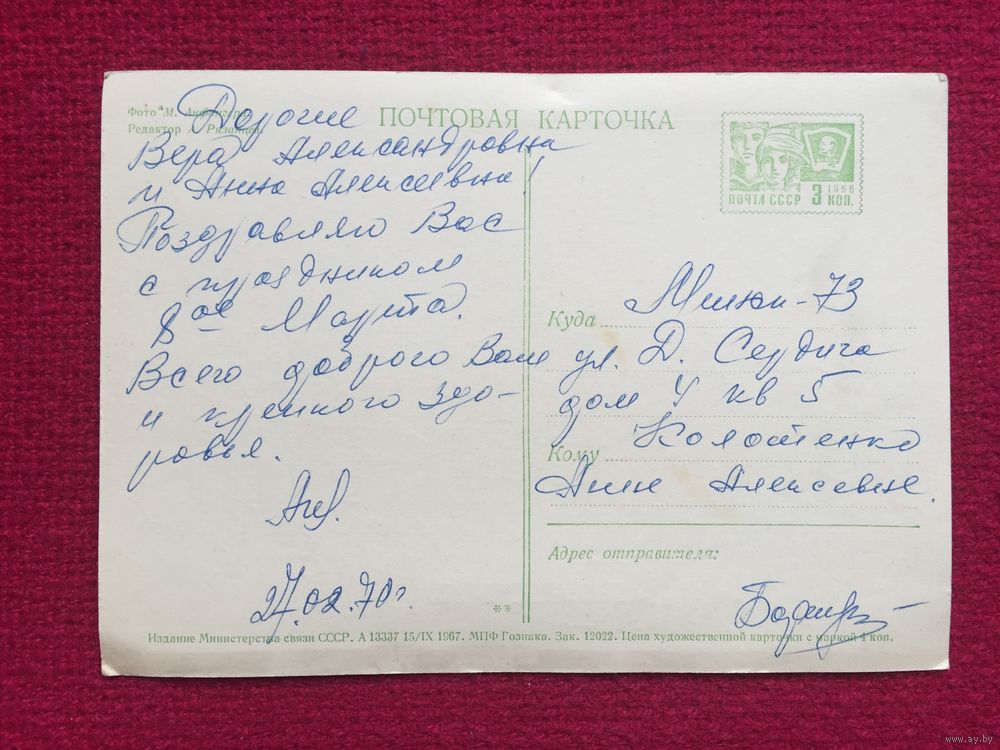 Фото М.
Редактор Л. Рязанцев
ПОЧТОВАЯ КАРТОЧКА
1966
ПОЧТА СССР 3 КОП.
Дорогие
Вера Александровна
и Анна Алексеевна!
Поздравляю Вас
с праздником
8ое Марта.
Всего доброго Вам
и крепкого здо-
ровья.
27.02.70г.
Куда
Минск-73
ул. Д. Сердича
дом 4 кв 5
Кому
Колотенко
Анне Алексевне.
Адрес отправителя:
**
Издание Министерства связи СССР. А 13337 15/IX 1967. МПФ Гознака. Зак. 12022. Цена художественной карточки с маркой 4 коп.
www.ay.by